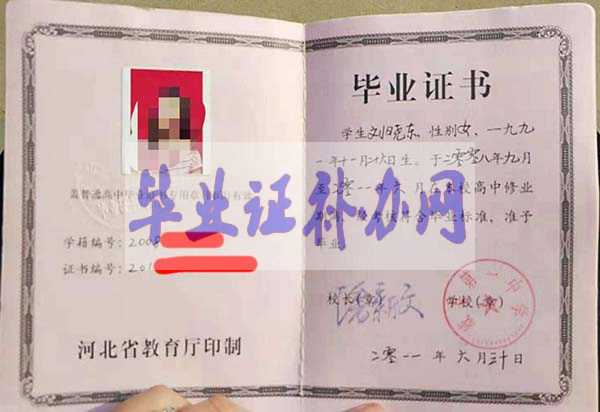 盖普通高中毕业证书专用章
学籍编号：200
证书编号：201
河北省教育厅印制
毕业证书
学生刘晓东，性别女，一九九
一年十一月十六日生。于二零零八年九月
至二零一一年六月在本校高中修业
合毕业标准，准予
毕业。
校长（章）
学校（章）
二零一一年六月三十日
毕业证补办网